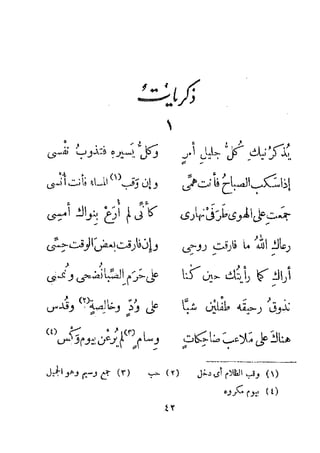 ذكريات
١
يُذكرنيك كلُّ جليل أمرٍ وكلُّ يسيره فتذوب نفسى
إذا سكب الصباح فأنت همّى وإن وقب (١) المساء فأنت أُنسى
جمعت على الهوى طرفَىْ نهارى كأنى لم أُرَعْ بنواك أمسِى
رعاك اللهُ ما فارقت روحى وإن فارقت بعض الوقت حِسّى
أراك كما رأيتك حين كنا على حَرَم الصِّبا نُضحى ونُمسى
نذوق رحيقه طفلين شبّا على وُدٍّ وخالصةٍ (٢) وقدس
هناك على ملاعب ضاحكات وسام (٣) لم يُرَعن بيوم وَكْس (٤)
(١) وقب الظلام أى دخل (٢) حب (٣) جمع وسيم وهو الجميل
(٤) يوم مكروه
٤٣